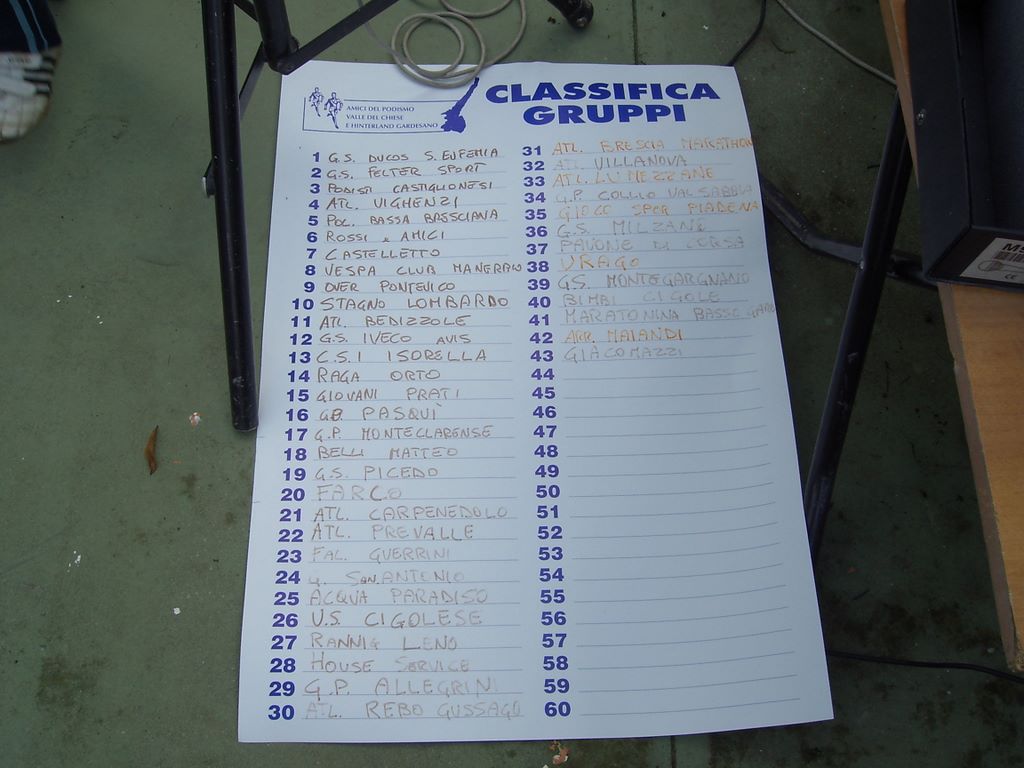 AMICI DEL PODISMO
VALLE DEL CHIESE
E HINTERLAND GARDESANO
CLASSIFICA
GRUPPI
1 G.S. DUCOS S. EUFEMIA
2 G.S. FELTER SPORT
3 PODISTI CASTIGLIONESI
4 ATL. VIGHENZI
5 POL. BASSA BRESCIANA
6 ROSSI e AMICI
7 CASTELLETTO
8 VESPA CLUB MANERBIO
9 OVER PONTEVICO
10 STAGNO LOMBARDO
11 ATL. BEDIZZOLE
12 G.S. IVECO AVIS
13 C.S.I ISORELLA
14 RAGA ORTO
15 GIOVANI PRATI
16 PASQUÌ
17 G.P. MONTECLARENSE
18 BELLI MATTEO
19 G.S. PICEDO
20 FARCO
21 ATL. CARPENEDOLO
22 ATL. PREVALLE
23 FAL. GUERRINI
24 G. SAN. ANTENIO
25 ACQUA PARADISO
26 U.S. CIGOLESE
27 LENO
28 HOUSE SERVICE
29 G.P. ALLEGRINI
30 ATL. REBO GUSSAGO
31 ATL. BRESCIA MARATHON
32 ATL. VILLANOVA
33 ATL. LUMEZZANE
34 G.P. COLLIO VALSABBIA
35 GIOCO SPOR PIADENA
36 G.S. MILZANO
37 PAVONE DI CORSA
38 URAGO
39 GS. MONTEGARGNANO
40 BIMBI CIGOLE
41 MARATONINA BASSO GARDA
42 ARR. MAIANDI
43 GIACOMAZZI
44
45
46
47
48
49
50
51
52
53
54
55
56
57
58
59
60